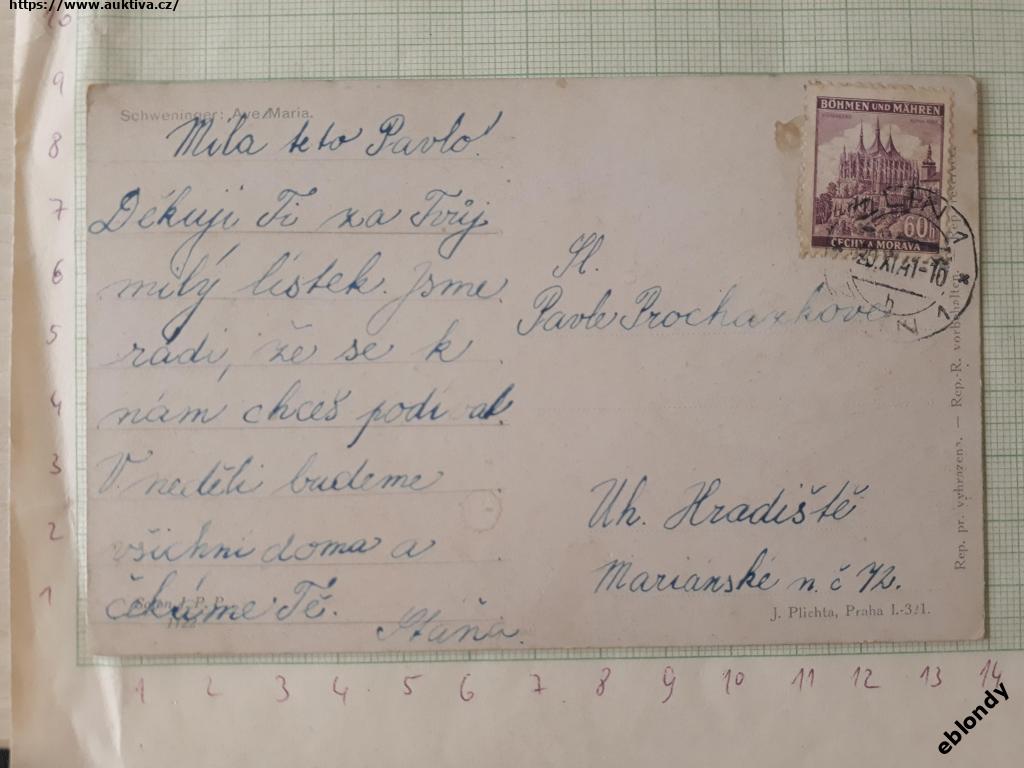 https://www.auktiva.cz/
Schweninger: Ave Maria.
Milá teto Pavlo!
Děkuji Ti za Tvůj
milý lístek. Jsme
rádi, že se k
nám chceš podívat.
V neděli budeme
všichni doma a
čekáme Tě.
Stáňa.
BÖHMEN UND MÄHREN
60h
ČECHY A MORAVA
XI 41-16
Sl.
Pavle Procházkové
Uh. Hradiště
Mariánské n. č 72.
J. Plichta, Praha I.-321.
Rep. pr. vyhrazen. — Rep. R. vorbehalten.
10
9
8
7
6
5
4
3
2
1
1 2 3 4 5 6 7 8 9 10 11 12 13 14
eblondy